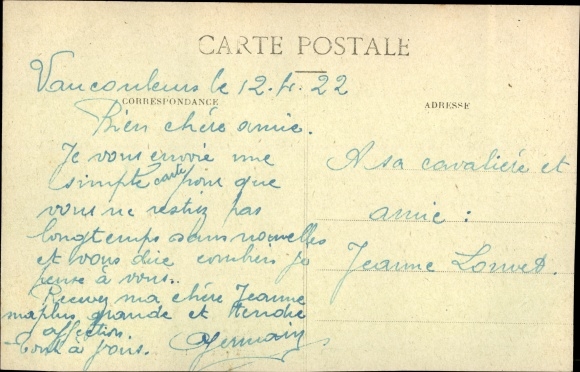 CARTE POSTALE
CORRESPONDANCE
ADRESSE
Vaucouleurs le 12. 22
Bien chére amie.
Je vous envoie une
simple carte pour que
vous ne restiez pas
longtemps sans nouvelles
et vous dire combien je
pense à vous.
Recevez ma chére Jeanne
ma plus grande et tendre
affection.
Tout à vous. Germain
A sa cavalière et
amie :
Jeanne